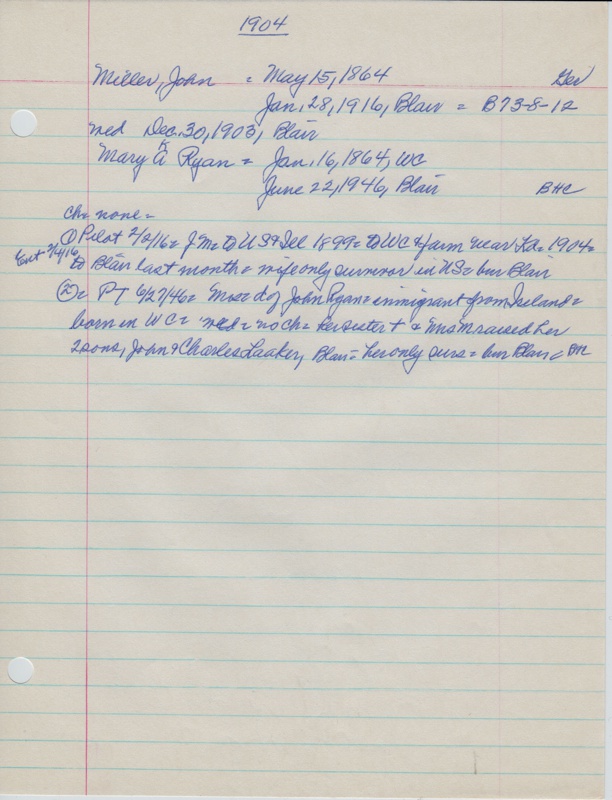 1904
Miller, John = May 15, 1864 Ger
Jan. 28, 1916, Blair = B73-8-12
med Dec. 30, 1903, Blair
Mary A Ryan = Jan. 16, 1864, WC
June 22, 1946, Blair BHC
ch = none =
① Pilot 2/2/16 = J M = to US & Ill 1899 = to WC & farm near Ka = 1904 =
Ent 2/4/16 to Blair last month = wife only survivor in US = bur Blair
② = PT 6/27/46 = M = d of John Ryan = immigrant from Ireland =
born in WC = med = no ch = her sister + & Mrs M raised her
2 sons, John & Charles Laaker, Blair = her only surs = bur Blair